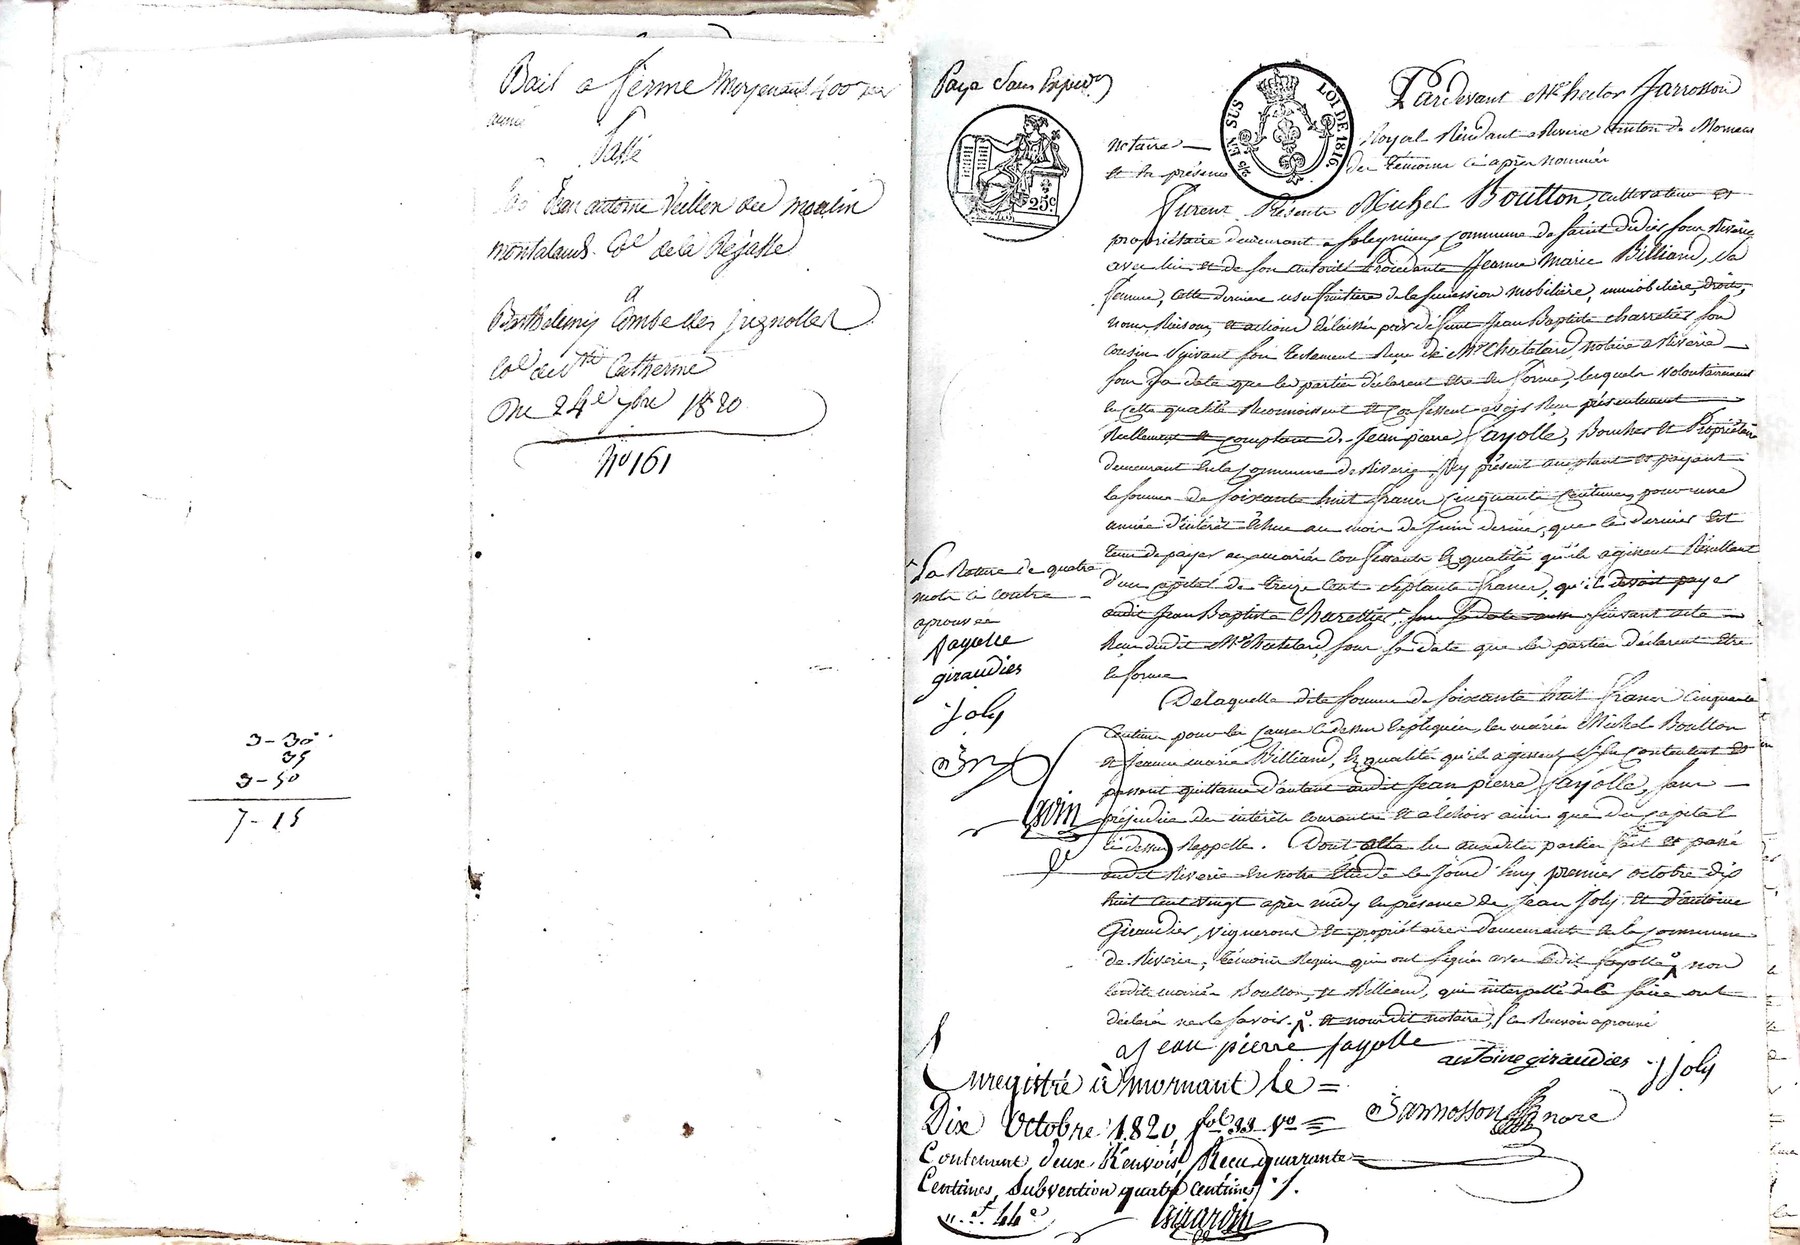 Bail a ferme moyenant 400 par
année
Passé
Par Jean antoine Veillon du moulin
montaland Cne de la Rejasse
a
Barthelemy Combe des jugnolles
Cne de Ste Catherine
Du 24e 7bre 1820
No 161
3-30
35
3-50
7-15
Paye Sans Expion
2/10 EN SUS LOI DE 1816
25c
Pardevant Me hector Jarrosson
notaire Royal Résidant a Riverie canton de Mornant
et en présence des témoins ci après nommés
Furent Présents Michel Boutton, cultivateur et
propriétaire demeurant a Soleymieux commune de Saint Didier sous Riverie
avec lui et de son autorité Procédante Jeanne Marie Billiand, Sa
femme, cette derniere usufruitiere de la succession mobilière, immobilière, droits,
noms Raisons et actions délaissés par défunt Jean Baptiste charretier son
cousin Suivant son testament Reçu de Me Chatelard, notaire a Riverie
sous Sa date que les parties déclarent être en forme, lesquels volontairement
en cette qualité Reconnoissent et confessent avoir Reçu présentement
Réellement et comptant de Jean pierre Fayolle, Boucher et Propriétaire
demeurant en la Commune de Riverie, Icy présent acceptant et payant
la somme de soixante huit francs cinquante centimes, pour une
année d'intérêt échue au mois de Juin dernier, que ce dernier est
tenu de payer aux mariés confessants en qualité qu'ils agissent Résultant
d'un capital de treize cent septante francs, qu'il devoit payer
audit Jean Baptiste Charettier, sous Sa date aussi suivant acte
Reçu dudit Me Chatelard, sous sa date que les parties déclarent être
en forme
La Rature de quatre
mots ci contre
aprouvée
fayolle
giraudier
joly
Girardin
De laquelle dite somme de soixante huit francs cinquante
centimes pour les causes ci dessus expliquées, les mariés Michel Boutton
et Jeanne marie Billiand, En qualité qu'ils agissent se contentent et
passent quittance d'autant audit Jean pierre Fayolle, sans
préjudice des intérêts courants et a échoir ainsi que du capital
ci dessus Rappellé. Dont acte lu auxdites parties fait et passé
audit Riverie en notre Etude le Jourd'huy premier octobre dix
huit cent vingt après midy en présence de Jean Joly et d'antoine
Giraudier, vignerons et propriétaires demeurants en la commune
de Riverie, témoins Requis qui ont signés avec ledit fayolle non
lesdits mariés Boutton, et Billiand, qui interpellés de le faire ont
déclaré ne le savoir. et nous dit notaire, Le Renvoi aprouvé
Jean pierre fayolle
antoine giraudier j joly
Jarrosson nore
Enregistré à mornant le
Dix Octobre 1820, fol. 33 Vo
Contenant deux Renvois Reçu quarante
Centimes, Subvention quatre centimes
44c
Girardin